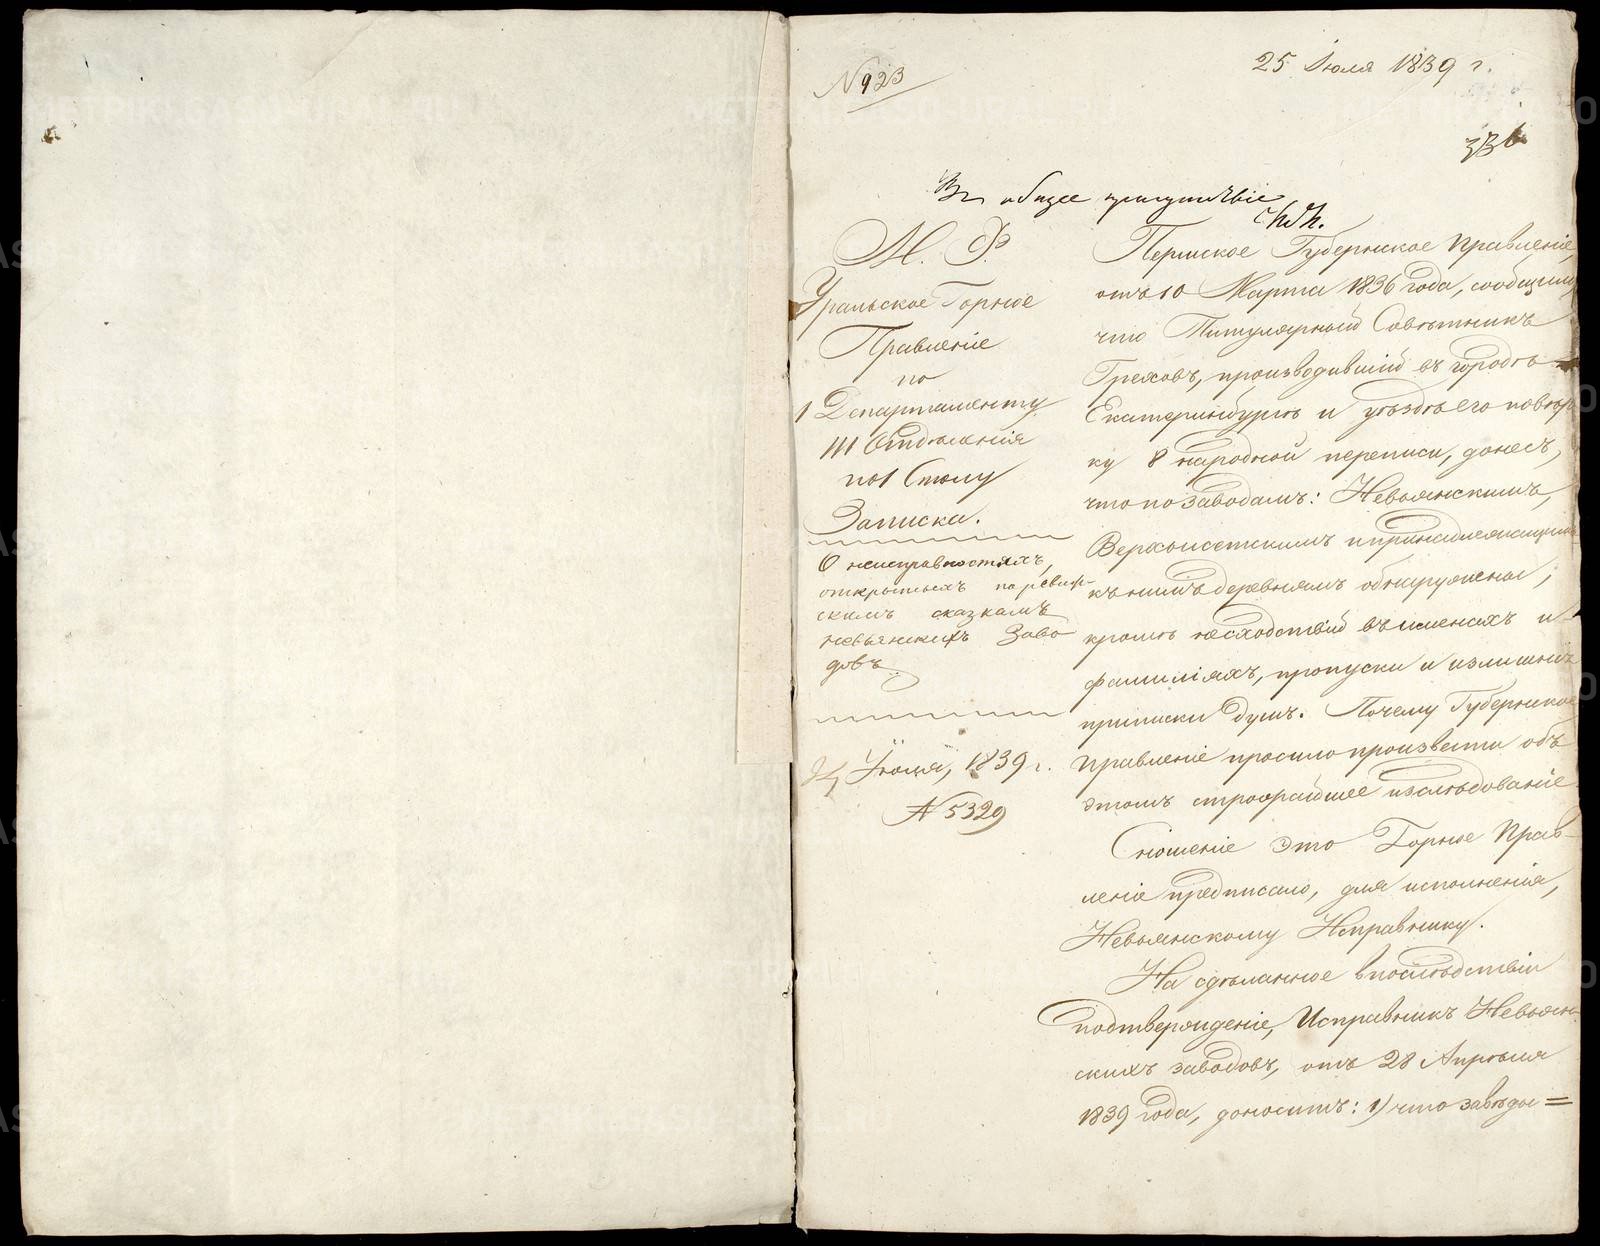 № 923
25 Іюля 1839 г.
336
Въ общее присутствіе
М. Ф.
Уральское Горное
Правленіе
по
1 Департаменту
III Отдѣленія
по 1 Столу
Записка.
О неисправностяхъ,
открытыхъ по ревиж-
скимъ сказкамъ
невьянскихъ Заво
довъ
Іюля, 1839 г.
№ 5329
Пермское Губернское Правленіе,
отъ 10 Марта 1836 года, сообщило,
что Титулярный Совѣтникъ
Грековъ, производившій въ городѣ
Екатеринбургѣ и уѣздѣ его повѣр
ку 8 народной переписи, донесъ,
что по заводамъ: Невьянскимъ,
Верхисетскимъ и принадлежащимъ
къ нимъ деревнямъ обнаружены,
кромѣ несходствій въ именахъ и
фамиліяхъ, пропуски и излишніе
приписки душъ. Почему Губернское
Правленіе просило произвести объ
этомъ строжайшее изслѣдованіе
Сношеніе это Горное Прав-
леніе предписало, для исполненія,
Невьянскому Исправнику.
На сдѣланное впослѣдствіи
подтвержденіе, Исправникъ Невьян-
скихъ заводовъ, отъ 28 Апрѣля
1839 года, доноситъ: 1) что завѣды=
METRIKI.GASO-URAL.RU